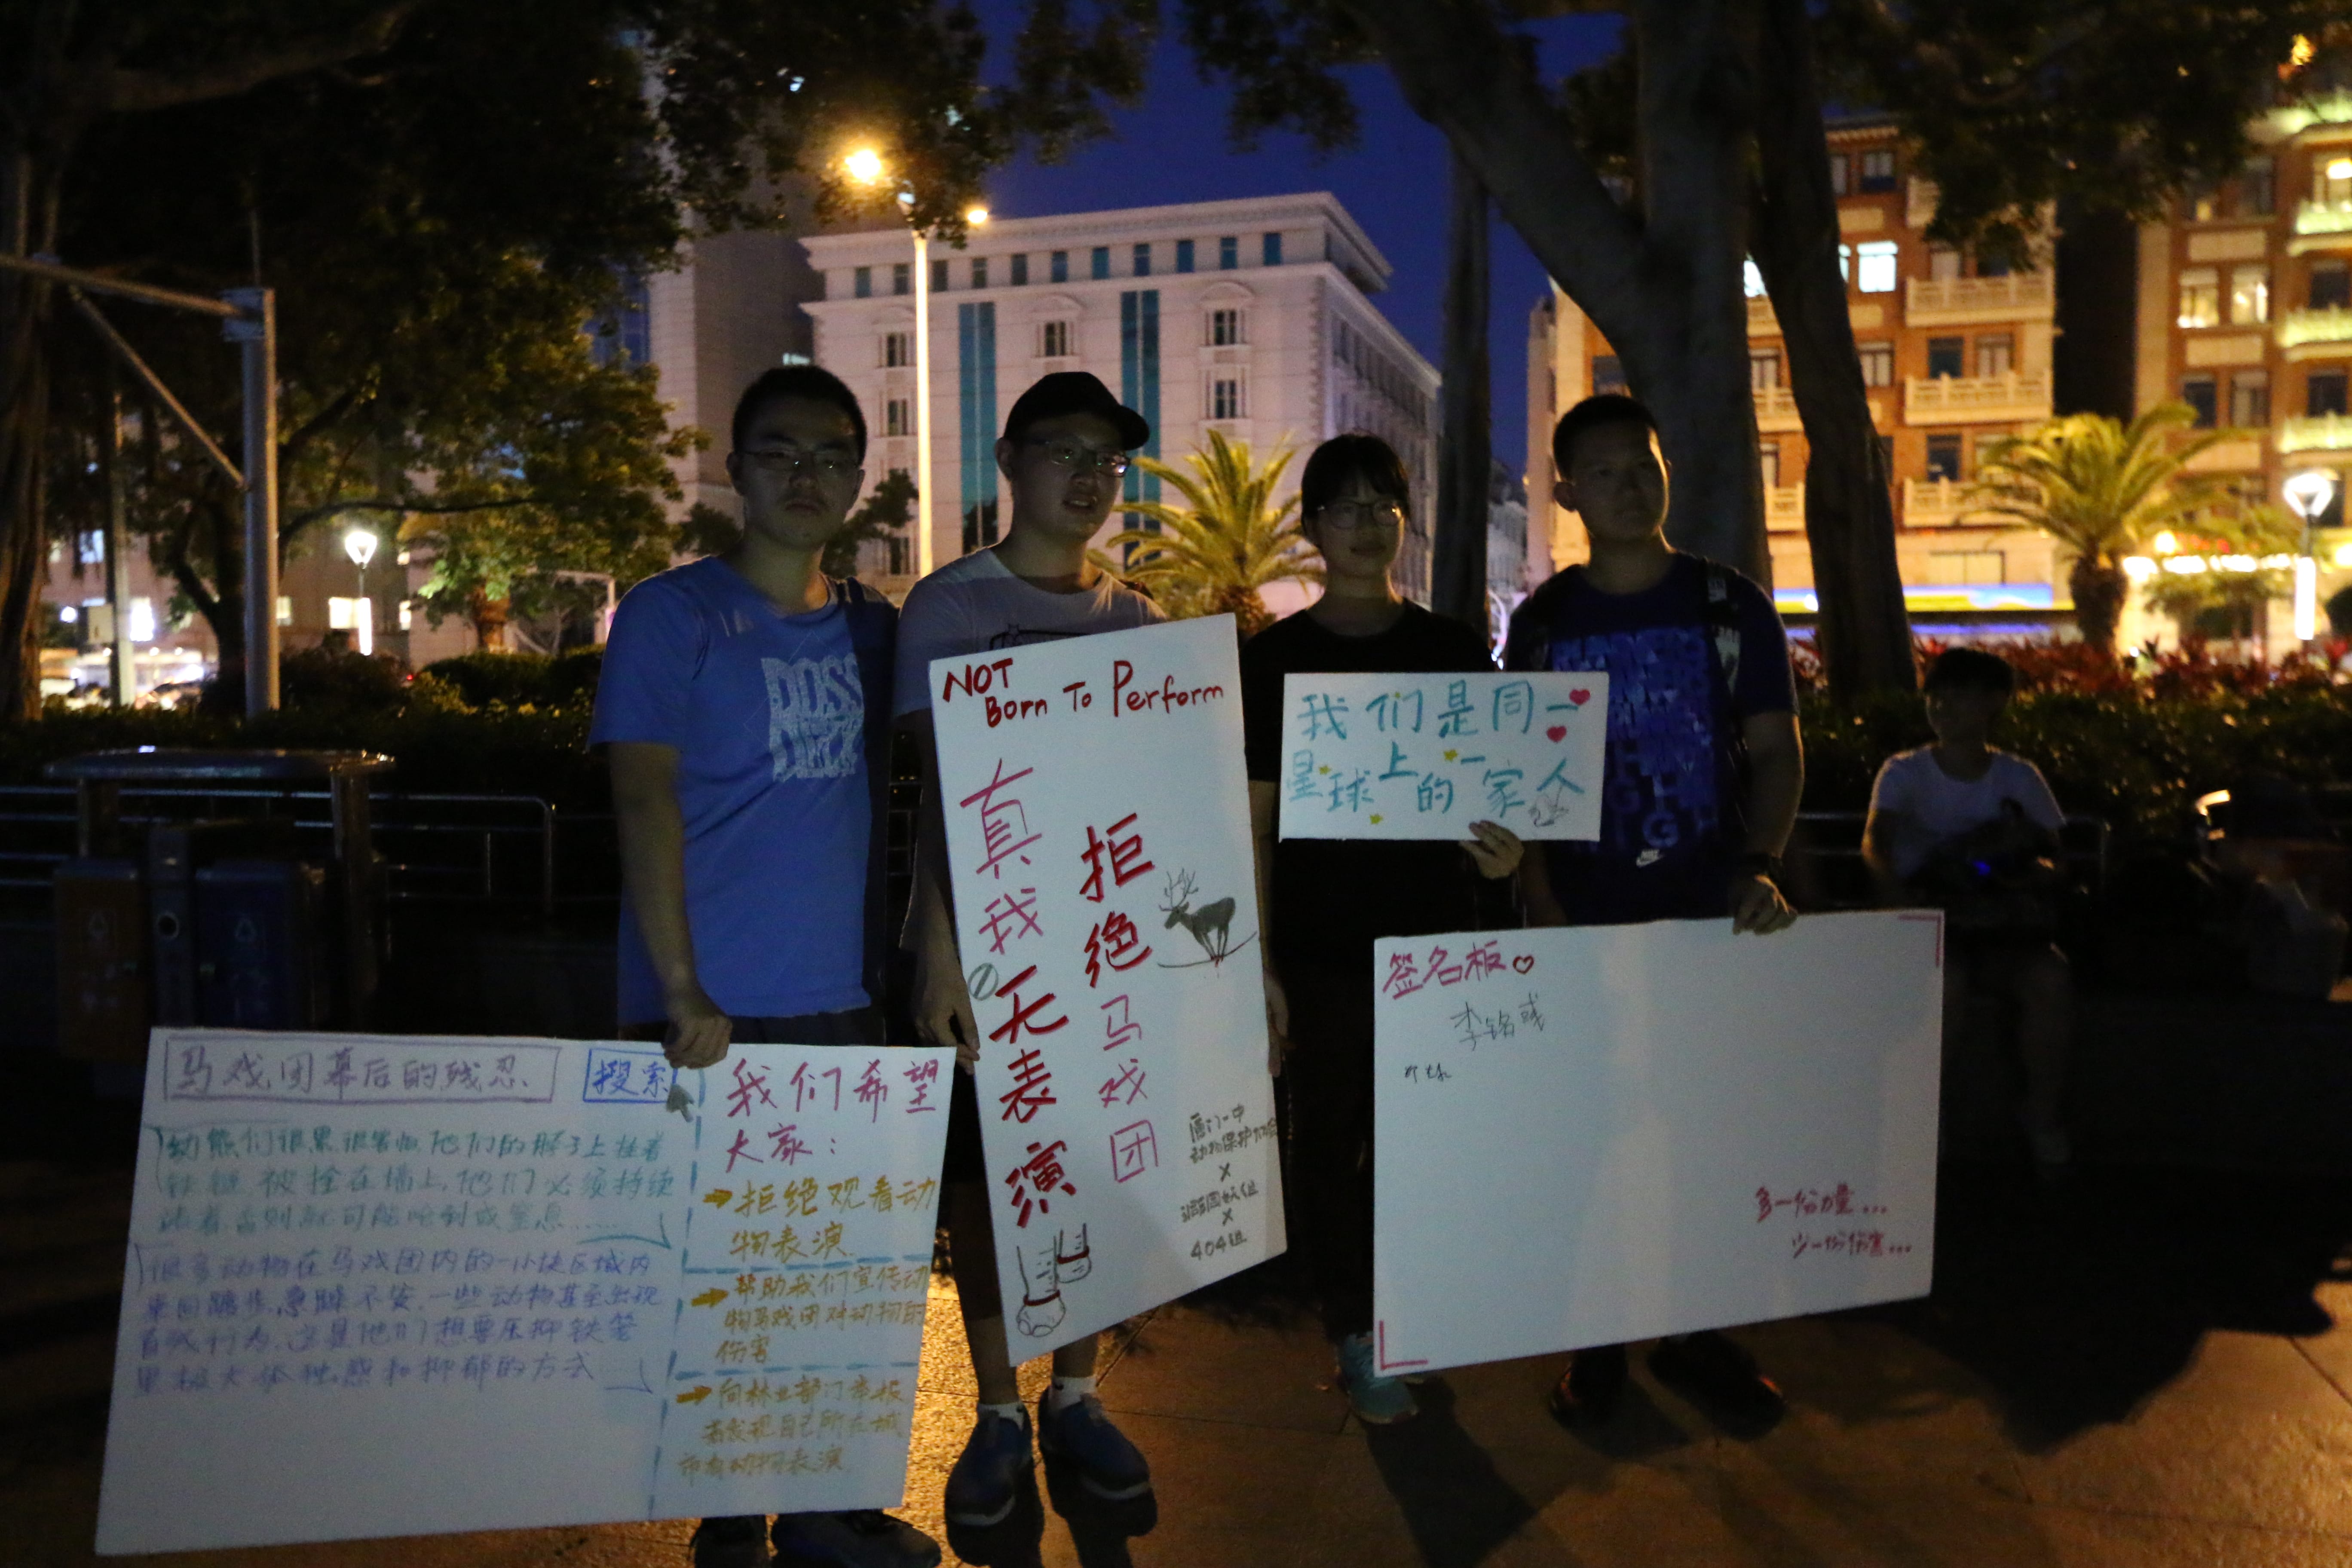 马戏团幕后的残忍 搜索
幼熊们很累很害怕他们的脖子上拴着
铁链,被拴在墙上,他们必须持续
站着,否则就可能呛到或窒息……
很多动物在马戏团内的一小块区域内
来回踱步,急躁不安,一些动物甚至出现
自残行为,这是他们想要压抑铁笼
里极大
感和抑郁的方式
我们希望
大家:
拒绝观看动
物表演
帮助我们宣传动
物马戏团对动物的
伤害
向林业部门举报
若发现自己所在城
市有动物表演
NOT
Born To Perform
真我无表演
拒绝马戏团
厦门一中
动物保护
×
×
404组
我们是同一
星球上的一家人
签名板
李铭
多一份力量...
少一份伤害...
DOSS